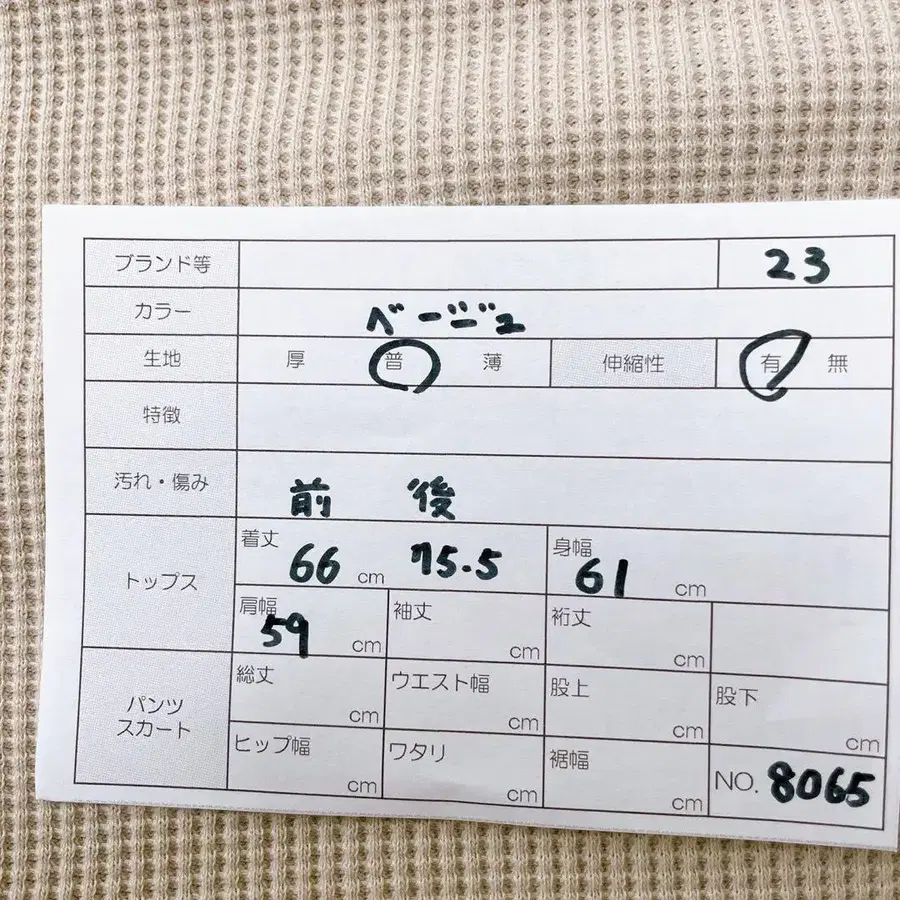 ブランド等 23
カラー ベージュ
生地 厚 普 薄 伸縮性 有 無
特徴
汚れ・傷み 前 後
トップス 着丈 66 cm 75.5 身幅 61 cm
肩幅 59 cm 袖丈 cm 裄丈 cm
パンツ スカート 総丈 cm ウエスト幅 cm 股上 cm 股下 cm
ヒップ幅 cm ワタリ cm 裾幅 cm NO. 8065